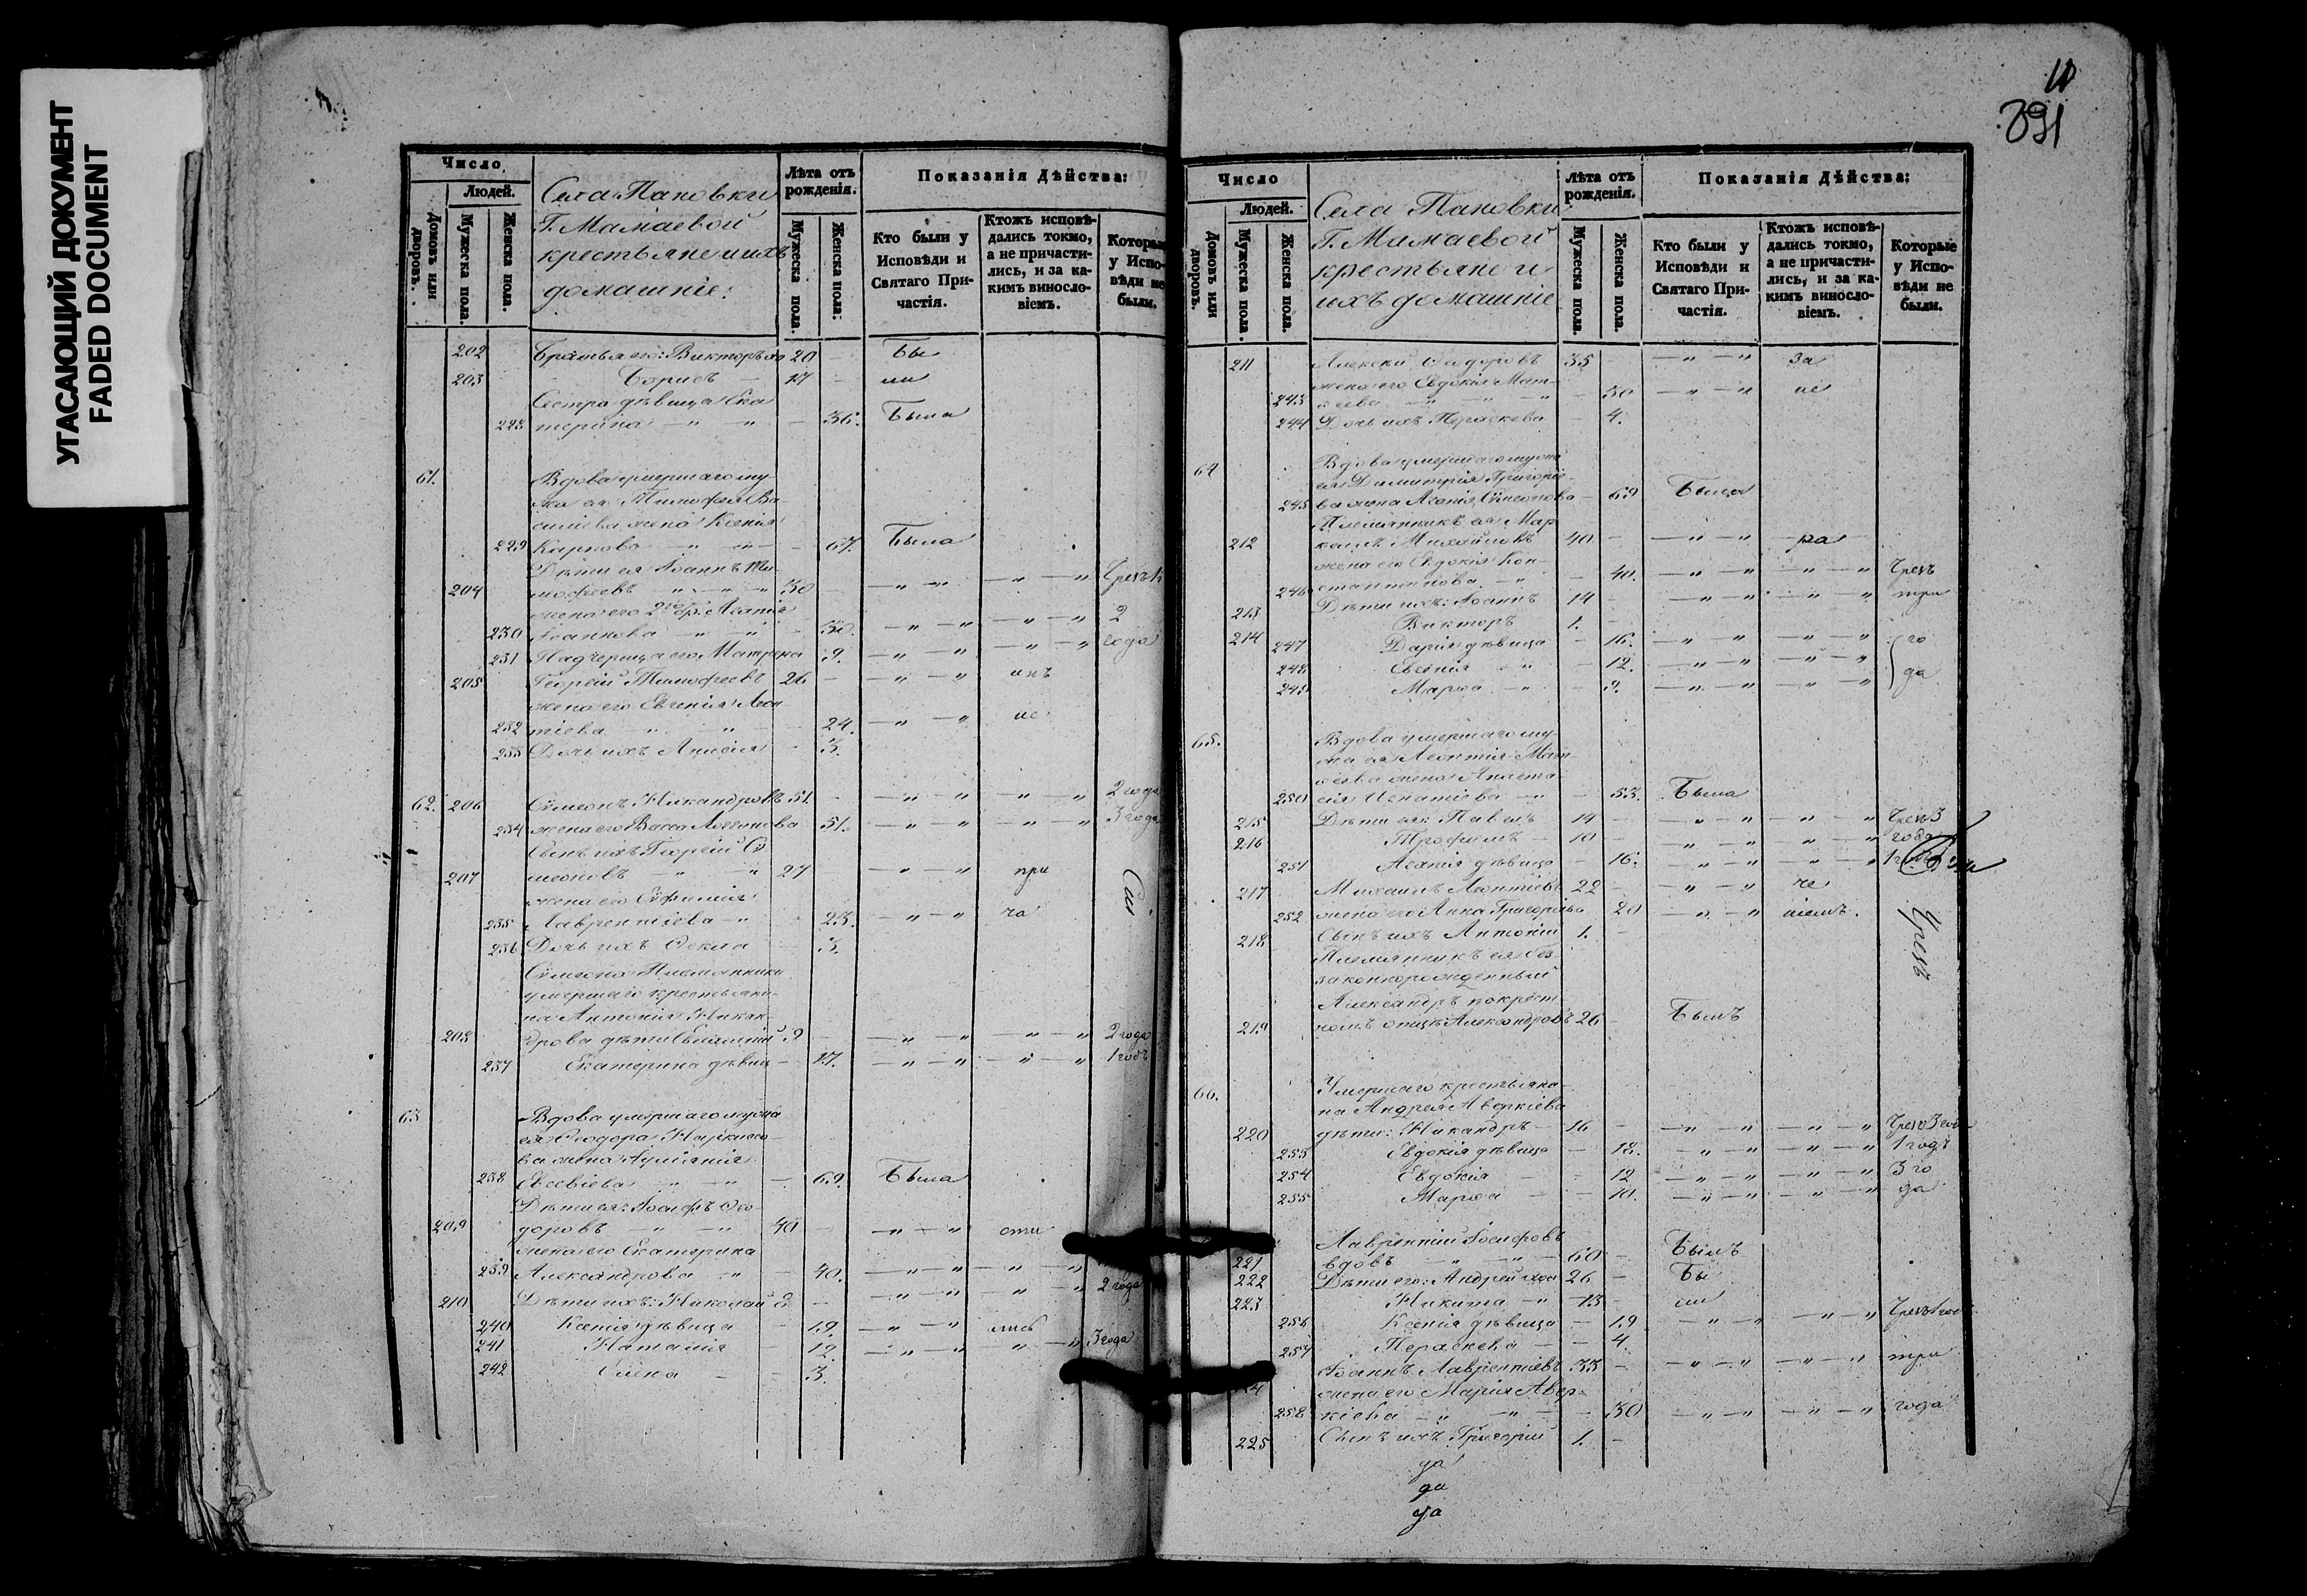 УГАСАЮЩИЙ ДОКУМЕНТ
FADED DOCUMENT
Число
Людей.
Домовъ или дворовъ.
Мужеска пола.
Женска пола.
Села Пановки
Г. Мамаевой
крестьяне и ихъ
домашніе:
Лѣта отъ рожденія.
Мужеска пола.
Женска пола:
Показанія Дѣйства:
Кто были у Исповѣди и Святаго Причастія.
Ктожъ исповѣдались токмо, а не причастились, и за какимъ винословіемъ.
Которые у Исповѣди не были.
202 Братья его: Викторъ 20 — Бы
203 Борисъ — 17 — ли
Сестра дѣвица Ека
228 терина — " — " — 36. Была
61. Вдова умершаго му-
жа ея Тимофея Ва-
силіева жена Ксенія
229 Карпова — " — " — 67. Была
Дѣти ея Іоаннъ Ти-
204 мофеевъ " — " — " 30 — " — " — " — "
жена его 2го бр. Агапія
230 Іоаннова — " — " — 30. — " — " — " — " 2
231 Падчерица его Матрена 9. — " — " — " — " года
205 Георгій Тимофеевъ 26 — — " — "
жена его Евгенія Леон
232 тіева — " — " — 24. — " — " не
233 Дочь ихъ Анисія — 3.
62. 206 Симеонъ Никандровъ 51. — — " — " " — " 2 года
234 жена его Васса 51. — " — " " — " 3 года
Сынъ ихъ Георгій Си
207 меоновъ — " — " 27 — " — " при
жена его Евфимія
235 Лаврентіева — " 23. — " — " ча
236 Дочь ихъ Ѳекла — 3.
Симеона Племянники
умершаго крестьяни-
на Антонія Никан-
208 дрова дѣти 9 — — " — " " — " 2 года
237 Екатерина дѣвиц — 17. — " — " " — " 1 годъ
63 Вдова умершаго мужа
ея Ѳеодора
ва жена
238 Евсевіева — " — " — 69. Была
Дѣти ея: Іосифъ Ѳео-
209 доровъ — " — " 40 — — " — " сти
жена его Екатерина
239 Александрова — " — 40. — " — " " — "
210 Дѣти ихъ: Николай 8 — — " — " " — " 2 года
240 Ксенія дѣвица — 19. — " — " лись
241 Наталія — 12. — " — " " — " 3 года
242 Елена — — 3.
Число
Людей.
Домовъ или дворовъ.
Мужеска пола.
Женска пола.
Села Пановки
Г. Мамаевой
крестьяне и
ихъ домашніе
Лѣта отъ рожденія.
Мужеска пола.
Женска пола.
Показанія Дѣйства:
Кто были у Исповѣди и Святаго Причастія.
Ктожъ исповѣдались токмо, а не причастились, и за какимъ винословіемъ.
Которые у Исповѣди не были.
211 Алексій Ѳеодоровъ 35 — " — " за
жена его Евдокія Мат-
243 ѳеева — " — " — 30 — " — "
244 Дочь ихъ Параскева — 4.
64 Вдова умершаго мужа
ея Димитрія Григоріе-
245 ва жена Агапія Симеонова — 69 Была
Племянникъ ея Мар
212 Михайловъ 40 — — " — " ра
жена его Евдокія Кон-
246 стантинова — " — 40. — " — " — " — " Чрезъ
213 Дѣти ихъ: Іоаннъ 14 — — " — " — " — " три
214 Викторъ 1. —
247 Дарія дѣвица — 16. — " — " — " — " го
248 Евгенія — " — 12. — " — " — " — " да
249 Марѳа — " — 9. — " — " — " — "
65. Вдова умершаго му-
жа ея Леонтія Мат-
ѳева жена Анаста
250 сія Игнатіева — " — 53. Была
215 Дѣти ея: Павелъ 14 — — " — " " — " Чрезъ 3
216 Трофимъ — 10 — — " — " " — " года
251 Агапія дѣвица — 16. — " — " " — " 1 годъ
217 Михаилъ Леонтіевъ 22 — — " — " че
252 жена его Анна Григорьева 20 — " — "
218 Сынъ ихъ Антоній 1. —
Чрезъ
Племянникъ ея без-
законнорожденный
Александръ по крест
219 номъ отцѣ Александровъ 26 — Былъ
66. Умершаго крестьяни-
на Андрея Аверкіева
220 дѣти: Никандръ — 16 — — " — " — " — "
253 Евдокія дѣвица — 18. — " — " — " — " 1 годъ
254 Евдокія — — 12 — " — " — " — " 3 го
255 Марѳа — — 10. — " — " — " — " да
Лаврентій Іосифовъ
221 вдовъ — " — " — 60 — Былъ
222 Дѣти его: Андрей 26 — Бы
223 Никита — " — 13 — ли
256 Ксенія дѣвица — 19 — " — " — " — "
257 Параскева — — 4
Іоаннъ Лаврентіевъ 33 — — " — " — " — " три
жена его Марія Авер-
258 кіева — " — " — 30 — " — " — " — " года
225 Сынъ ихъ Григорій 1. —
да
да
да